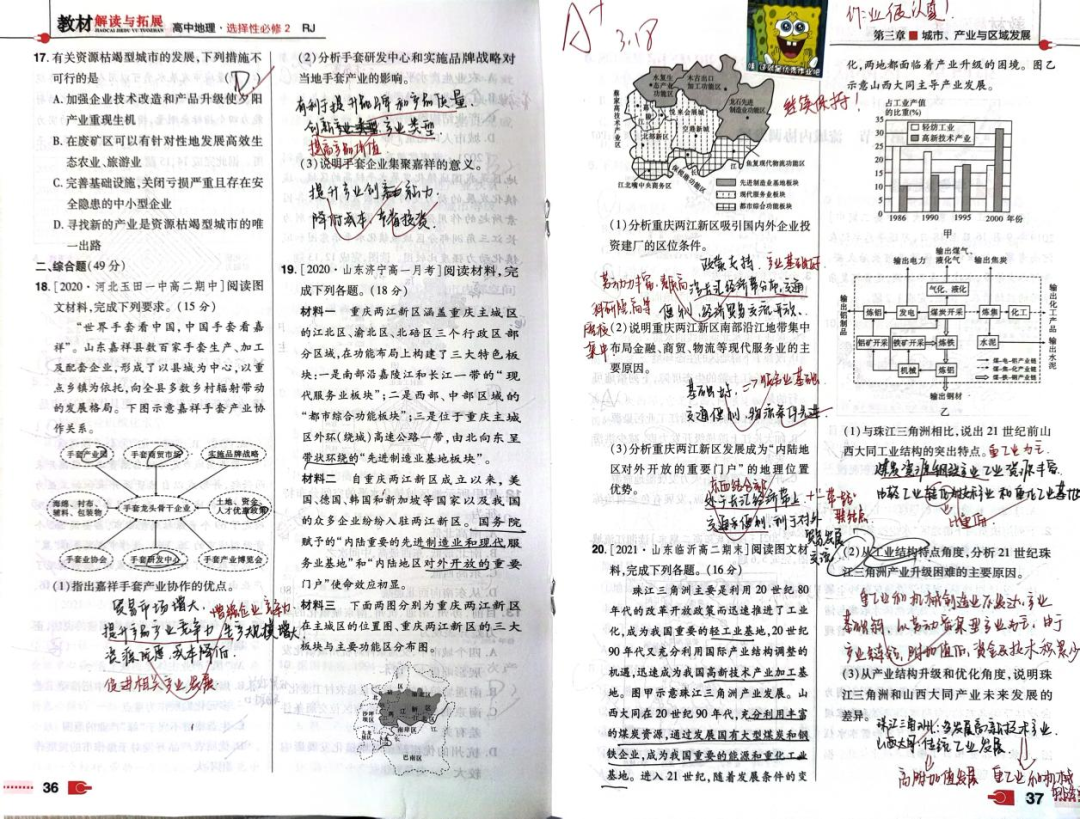 教材解读与拓展 高中地理·选择性必修2 RJ
17. 有关资源枯竭型城市的发展,下列措施不
可行的是 ( )
A. 加强企业技术改造和产品升级使夕阳
产业重现生机
B. 在废矿区可以有针对性地发展高效生
态农业、旅游业
C. 完善基础设施,关闭亏损严重且存在安
全隐患的中小型企业
D. 寻找新的产业是资源枯竭型城市的唯
一出路
二、综合题(49分)
18. [2020·河北玉田一中高二期中]阅读图
文材料,完成下列要求。(15分)
“世界手套看中国,中国手套看嘉
祥”。山东嘉祥县数百家手套生产、加工
及配套企业,形成了以县城为中心,以重
点乡镇为依托,向全县多数乡村辐射带动
的发展格局。下图示意嘉祥手套产业协
作关系。
手套产业园 手套商贸市场 实施品牌战略
海绵、衬布、辅料、包装物 手套龙头骨干企业 土地、资金、人才优惠政策
手套业协会 手套研发中心 手套产业博览会
(1)指出嘉祥手套产业协作的优点。
提升产业竞争力
促进相关产业发展
36
(2)分析手套研发中心和实施品牌战略对
当地手套产业的影响。
有利于提升品牌和产品质量
创新产业类型
提高产品附加值
(3)说明手套企业集聚嘉祥的意义。
提升产业创新能力
降低成本
19. [2020·山东济宁高一月考]阅读材料,完
成下列各题。(18分)
材料一 重庆两江新区涵盖重庆主城区
的江北区、渝北区、北碚区三个行政区部
分区域,在功能布局上构建了三大特色板
块:一是南部沿嘉陵江和长江一带的“现
代服务业板块”;二是西部、中部区域的
“都市综合功能板块”;三是位于重庆主城
区外环(绕城)高速公路一带,由北向东呈
带状环绕的“先进制造业基地板块”。
材料二 自重庆两江新区成立以来,美
国、德国、韩国和新加坡等国家以及我国
的众多企业纷纷入驻两江新区。国务院
赋予的“内陆重要的先进制造业和现代服
务业基地”和“内陆地区对外开放的重要
门户”使命效应初显。
材料三 下面两图分别为重庆两江新区
在主城区的位置图、重庆两江新区的三大
板块与主要功能区分布图。
巴南区
A+
3.18
作业很认真!
继续保持!
第三章 城市、产业与区域发展
水复生态产业功能区
木古出口加工功能区
龙石先进制造功能区
蔡家高技术产业区
鱼复现代物流功能区
江北嘴中央商务区
先进制造业基地板块
现代服务业板块
都市综合功能板块
(1)分析重庆两江新区吸引国内外企业投
资建厂的区位条件。
政策支持
产业基础好
(2)说明重庆两江新区南部沿江地带集中
布局金融、商贸、物流等现代服务业的主
要原因。
基础好
交通便利
(3)分析重庆两江新区发展成为“内陆地
区对外开放的重要门户”的地理位置
优势。
20. [2021·山东临沂高二期末]阅读图文材
料,完成下列各题。(16分)
珠江三角洲主要是利用20世纪80
年代的改革开放政策而迅速推进了工业
化,成为我国重要的轻工业基地,20世纪
90年代又充分利用国际产业结构调整的
机遇,迅速成为我国高新技术产业加工基
地。图甲示意珠江三角洲产业发展。山
西大同在20世纪90年代,充分利用丰富
的煤炭资源,通过发展国有大型煤炭和钢
铁企业,成为我国重要的能源和重化工业
基地。进入21世纪,随着发展条件的变
化,两地都面临着产业升级的困境。图乙
示意山西大同主导产业发展。
占工业产值的比重(%)
轻纺工业
高新技术产业
35
30
25
20
15
10
5
0
1986 1990 1995 2000 年份
甲
输出电力 输出煤气、液化气 输出焦炭
气化、液化
炼铝 发电 煤炭开采 炼焦 化工
铝矿开采 铁矿开采 炼铁 水泥
机械 炼铝
输出铝制品
输出化工产品
输出水泥
输出钢材
煤-电-铝产业链
煤-焦-化产业链
煤-铁-钢产业链
乙
(1)与珠江三角洲相比,说出21世纪前山
西大同工业结构的突出特点。
重工业为主
(2)从工业结构特点角度,分析21世纪珠
江三角洲产业升级困难的主要原因。
重工业和机械制造业不发达,产业
基础弱,以劳动密集型产业为主,由于
(3)从产业结构升级和优化角度,说明珠
江三角洲和山西大同产业未来发展的
差异。
珠江三角洲:多发展高新技术产业
高附加值发展
37